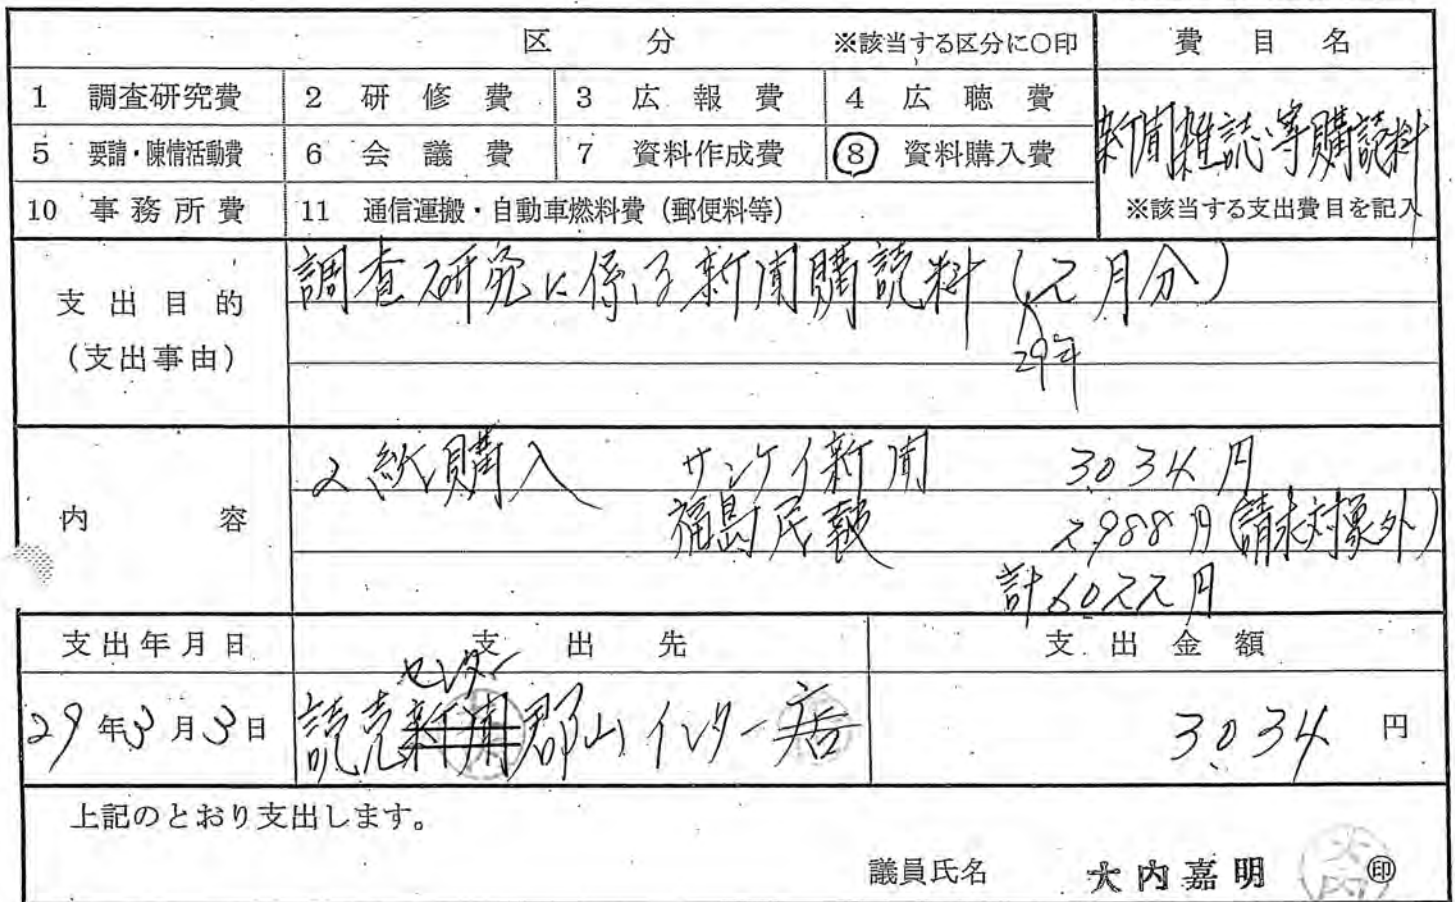 区 分 ※該当する区分に○印 費目名
1 調査研究費 2 研修費 3 広報費 4 広聴費
新聞雑誌等購読料
5 要請・陳情活動費 6 会議費 7 資料作成費 8 資料購入費
10 事務所費 11 通信運搬・自動車燃料費(郵便料等) ※該当する支出費目を記入
支出目的
(支出事由)
調査研究に係る新聞購読料(2月分)
29年
内容
2紙購入 サンケイ新聞 3034円
福島民報 2988円(請求対象外)
計6022円
支出年月日 支出先 支出金額
センター
29年3月3日 読売新聞郡山インター店 3034円
上記のとおり支出します。
議員氏名 大内嘉明 印